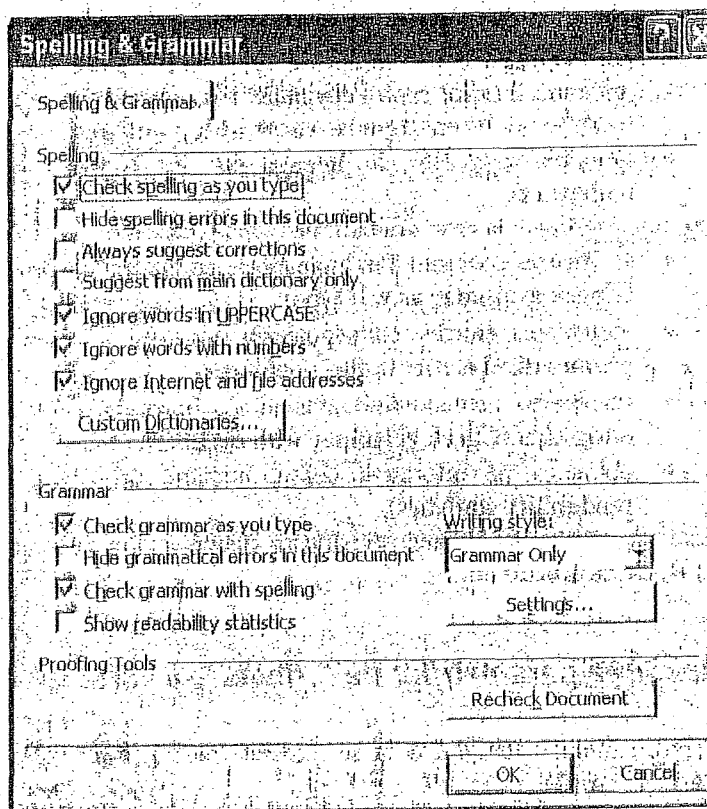 Spelling & Grammar
Spelling & Grammar
Spelling
Check spelling as you type
Hide spelling errors in this document
Always suggest corrections
Suggest from main dictionary only
Ignore words in UPPERCASE
Ignore words with numbers
Ignore Internet and file addresses
Custom Dictionaries...
Grammar
Check grammar as you type
Writing style:
Hide grammatical errors in this document
Grammar Only
Check grammar with spelling
Settings...
Show readability statistics
Proofing Tools
Recheck Document
OK Cancel